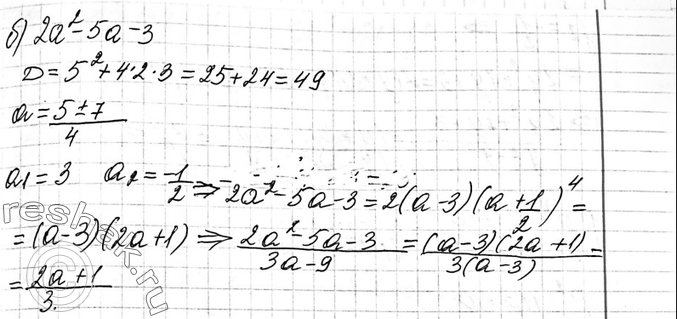 б) 2a² - 5a - 3
D = 5² + 4·2·3 = 25 + 24 = 49
a = (5 ± 7)/4
a₁ = 3 a₂ = -1/2 ⇒ 2a² - 5a - 3 = 2(a - 3)(a + 1/2)⁴ =
= (a - 3)(2a + 1) ⇒ (2a² - 5a - 3)/(3a - 9) = ((a - 3)(2a + 1))/(3(a - 3)) =
= (2a + 1)/3.
reshak.ru